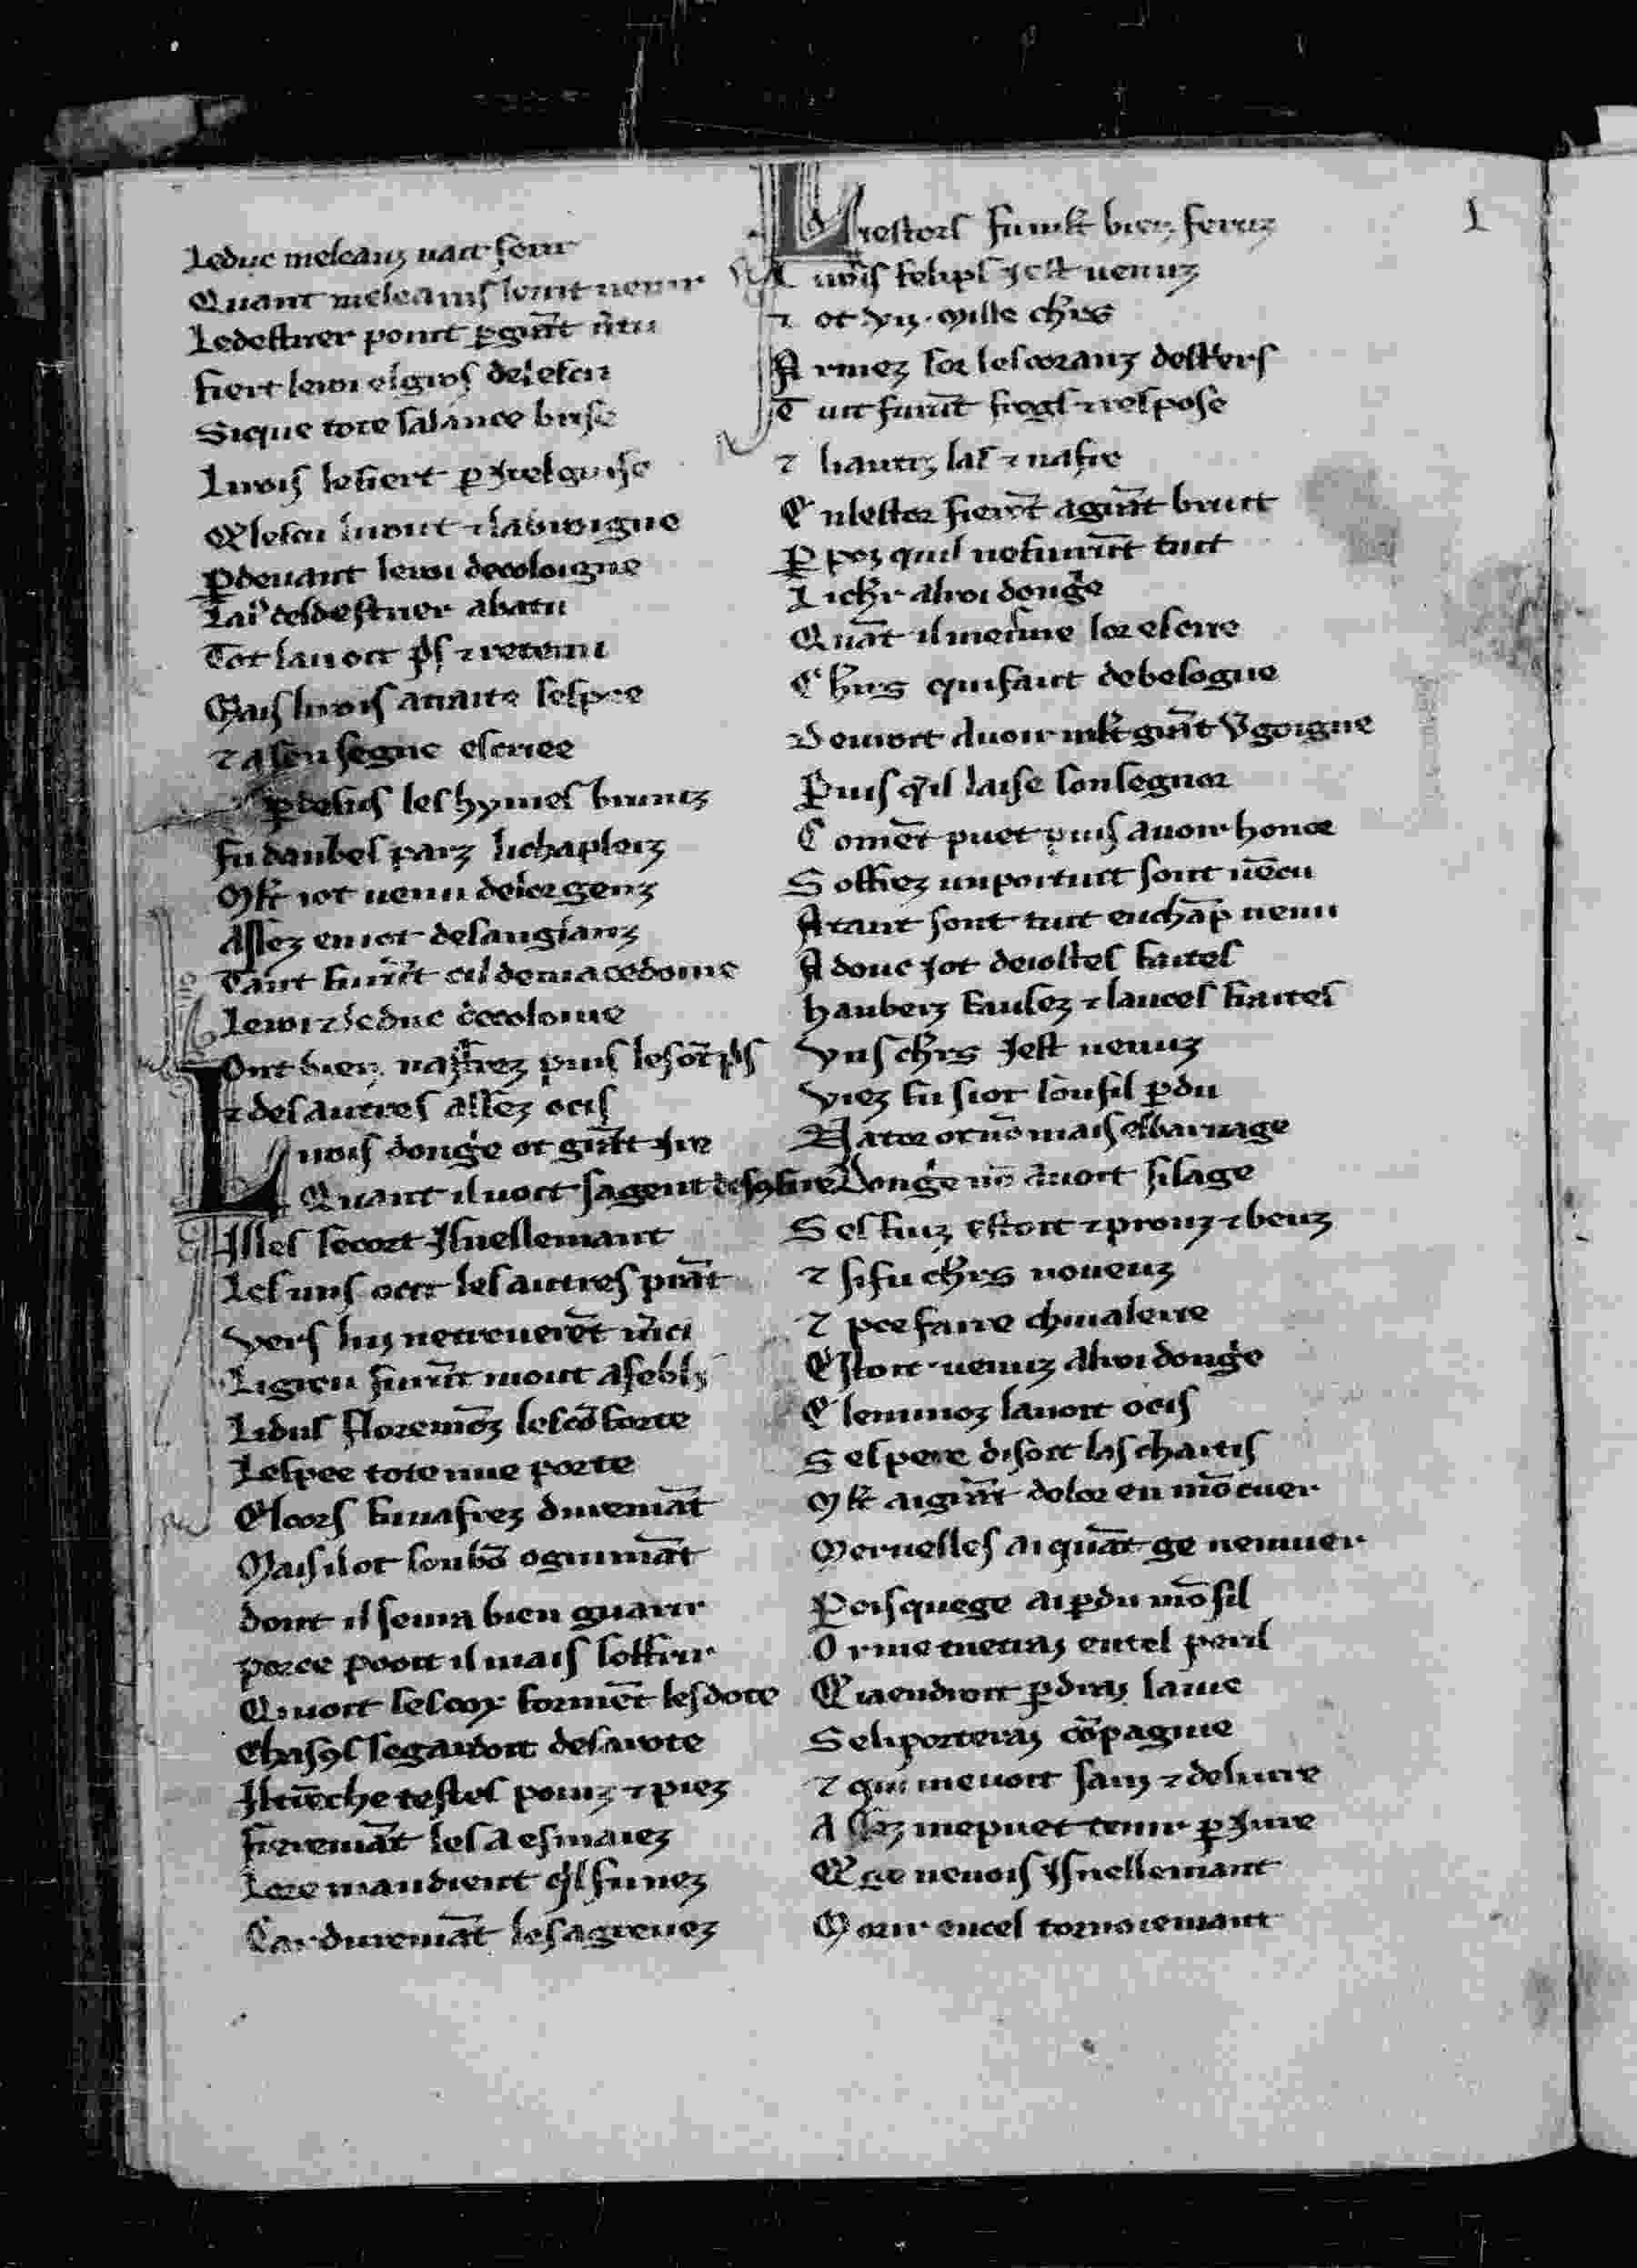 Leduc meleanz uait ferir
Quant meleains louit uenir
Ledestrier point ꝑ grāt u̾tu
fiert lewi el gros de lescu
Si que tote sa lance brise
Luois lefiert ꝑ itel guise
Q̃ lescu luout ⁊ labroigne
ꝑ deuant lewi decoloigne
La ius del destrier abatu
Tot lauoit p̾s ⁊ retenu
Mais luois a traite lespee
⁊ a sensegne escriee
ꝑ desus les hymes bruniz
fu danbes parz li chapleiz
Mlt iot uenu de lor genz
Assez en iot de sanglanz
Tant furēt cil demacedoine
Lewi ⁊ leduc decoloine
Ont bien nafrez puis lesōt p̾s
⁊ des autres assez ocis
Luois donge ot grāt ire
Quant il uoit sa gent desꝯfire
Illes secort isnellemant
Les uns ocit les autres prāt
Vers luy netrouerēt m̾ci
Ligieu furēt mout afebli
Li dus floremōz les cōforte
Lespee tote nue porte
El cors fu nafrez durem̄at
Mais il ot son bō oguim̄at
dont il sera bien guarir
porce pooit il mais soffrir
Qi uoit ses cox form̄et les dote
Chasꝯs se gardoit de sa rote
Il trēche testes poinz ⁊ piez
fierem̄at les a esmaiez
Lore maudient q̾l fu nez
Car durem̄at les a greuez
Li estors fu mlt bien feruz
A luois felips i est uenuz
⁊ ot vii. mille ch̾rs
Armez sor les coranz destrers
Tuit furēt fregs ⁊ respose
⁊ hantiz las ⁊ nafre
En lestor fierēt a grāt bruit
ꝑ poz quil nefuirēt tuit
Li ch̾r a lwi donge
Quāt il meisme lor escrie
Ch̾rs qui faut de besogne
Deuroit auoir mlt grāt v̾goigne
Puis q̾l laise son segnor
Comēt puet puis auoir honor
Soffrez un por tuit sont uēcu
Atant sont tuit en chāp uenu
Adonc iot de iostes faites
haubers fausez ⁊ lances fraites
Vns ch̾rs i est uenuz
Viez fu si ot son fil ꝑdu
Nator ot nō mais el barnage
Donge nō auoit si sage
Ses fiuz estoit ⁊ prouz ⁊ beuz
⁊ si fu ch̾rs noueuz
⁊ por faire ch̾ualerie
Estoit uenuz a lwi donge
Clemmoz lauoit ocis
Ses pere disoit las chaitis
Mlt ai grāt dolor en mō cuer
Merueilles ai quāt ge nemuer
Pois que ge ai ꝑdu mō fil
Or me metraj en tel peril
Q̃ ia en droit ꝑdraj la uie
Se li porteraj cōpagnie
⁊ qui me uoit sain ⁊ deliure
Assez me puet tenir ꝑ yure
Q̃ ge neuois isnellemant
Morir en cel tornoiemant